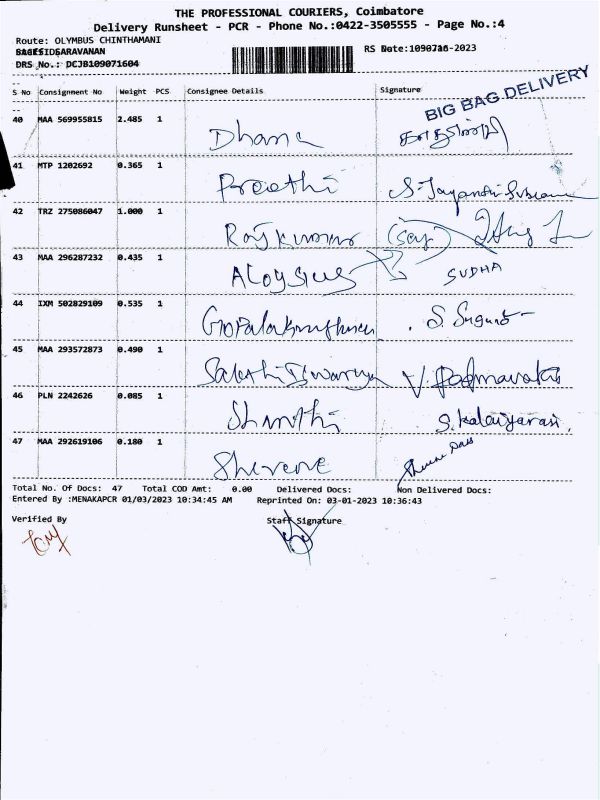 THE PROFESSIONAL COURIERS, Coimbatore
Delivery Runsheet - PCR - Phone No.:0422-3505555 - Page No.:4
Route: OLYMBUS CHINTHAMANI
DRS No.: DCJB109071604
S No Consignment No Weight PCS Consignee Details Signature
BIG BAG DELIVERY
40 MAA 569955815 2.485 1 Dhana
41 MTP 1202692 0.365 1 Preethi
42 TRZ 275086047 1.000 1 Rajkumar
43 MAA 296287232 0.435 1 Aloysius SUDHA
44 IXM 502829109 0.535 1 Gopalakrushnan
45 MAA 293572873 0.490 1 V. Padmavathi
46 PLN 2242626 0.085 1 Shanthi S. Kalaiyarasi.
47 MAA 292619106 0.180 1 Sherene
Total No. Of Docs: 47 Total COD Amt: 0.00 Delivered Docs: Non Delivered Docs:
Entered By :MENAKAPCR 01/03/2023 10:34:45 AM Reprinted On: 03-01-2023 10:36:43
Verified By Staff Signature